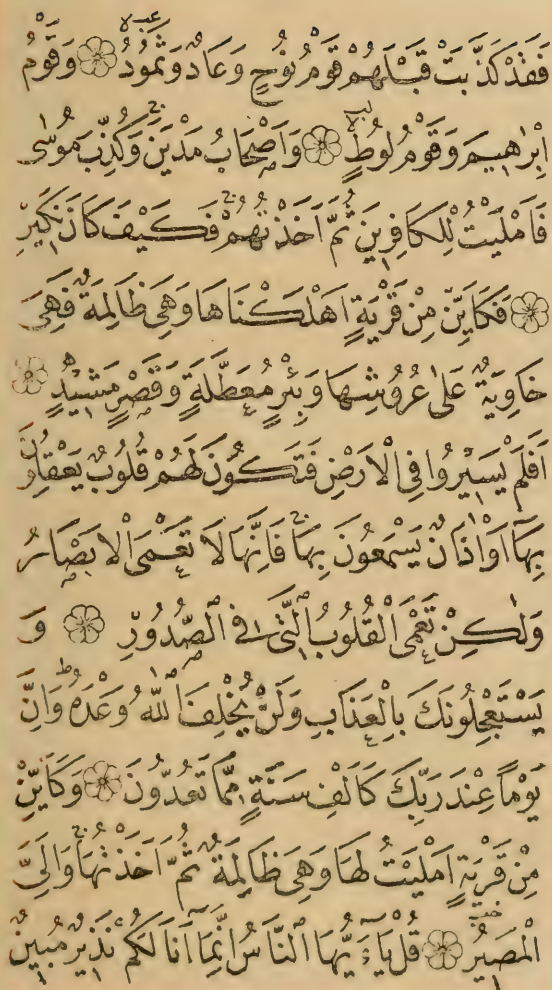 فَقَدْ كَذَّبَتْ قَبْلَهُمْ قَوْمُ نُوحٍ وَعَادٌ وَثَمُودُ ۞ وَقَوْمُ
اِبْرٰهِيمَ وَقَوْمُ لُوطٍ ۞ وَاَصْحَابُ مَدْيَنَ وَكُذِّبَ مُوسٰى
فَاَمْلَيْتُ لِلْكَافِرِينَ ثُمَّ اَخَذْتُهُمْ فَكَيْفَ كَانَ نَكِيْرِ
۞ فَكَاَيِّنْ مِنْ قَرْيَةٍ اَهْلَكْنَاهَا وَهِىَ ظَالِمَةٌ فَهِىَ
خَاوِيَةٌ عَلٰى عُرُوشِهَا وَبِئْرٍ مُعَطَّلَةٍ وَقَصْرٍ مَشِيْدٍ ۞
اَفَلَمْ يَسِيْرُوا فِى الْاَرْضِ فَتَكُونَ لَهُمْ قُلُوبٌ يَعْقِلُونَ
بِهَٓا اَوْ اٰذَانٌ يَسْمَعُونَ بِهَا فَاِنَّهَا لَا تَعْمَى الْاَبْصَارُ
وَلٰكِنْ تَعْمَى الْقُلُوبُ الَّتٖى فِى الصُّدُورِ ۞ وَ
يَسْتَعْجِلُونَكَ بِالْعَذَابِ وَلَنْ يُخْلِفَ اللّٰهُ وَعْدَهُ وَاِنَّ
يَوْماً عِنْدَ رَبِّكَ كَاَلْفِ سَنَةٍ مِمَّا تَعُدُّونَ ۞ وَكَاَيِّنْ
مِنْ قَرْيَةٍ اَمْلَيْتُ لَهَا وَهِىَ ظَالِمَةٌ ثُمَّ اَخَذْتُهَا وَاِلَىَّ
الْمَصِيْرُ ۞ قُلْ يَٓا اَيُّهَا النَّاسُ اِنَّمَٓا اَنَا لَكُمْ نَذِيْرٌ مُبِيْنٌ